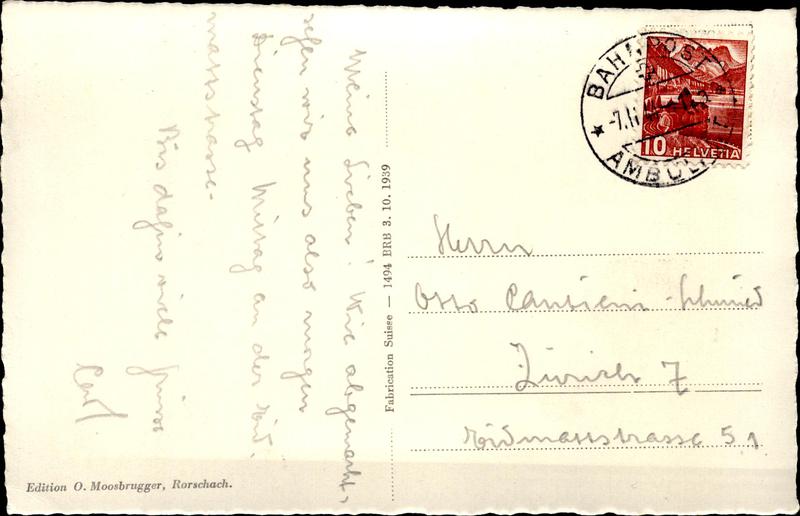 Meine Lieben! Wie abgemacht,
sehen wir uns also morgen
Dienstag Mittag an der Eid-
mattstrasse.
Bis dahin viele Grüsse
Carl.
Fabrication Suisse — 1494 BRB 3. 10. 1939
BAHNPOST
AMBULANT
10 HELVETIA
Herrn
Otto Cantieni-Schmid
Zürich 7
Eidmattstrasse 51
Edition O. Moosbrugger, Rorschach.